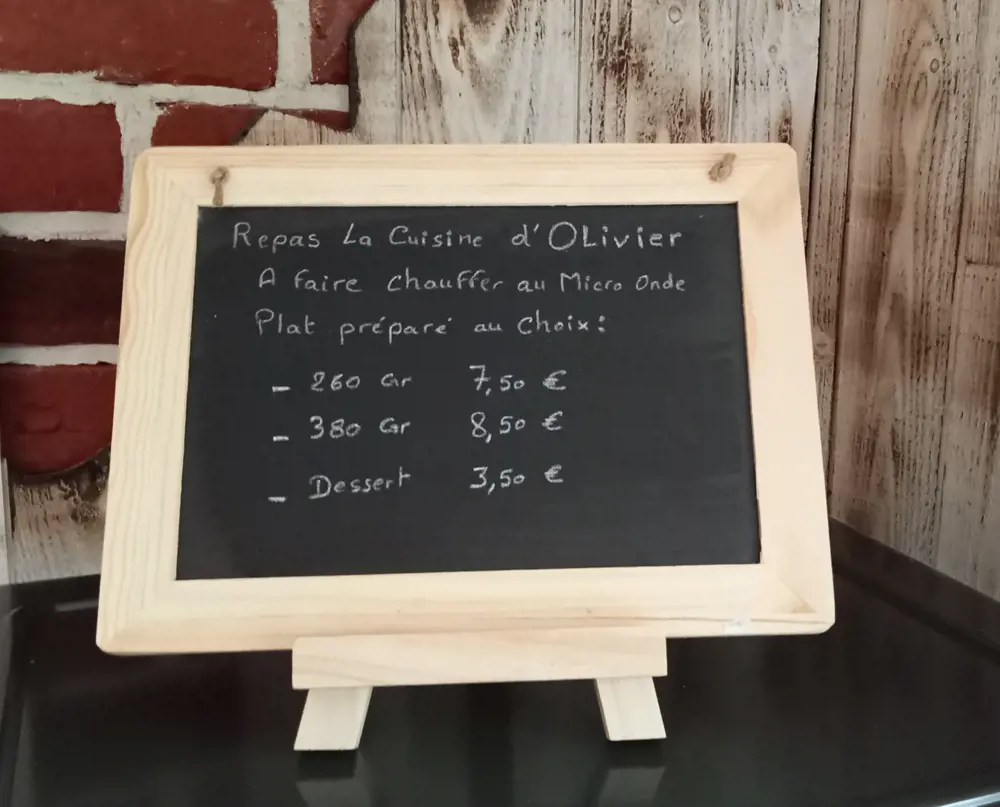 Repas La Cuisine d'OLivier
A faire chauffer au Micro Onde
Plat préparé au choix :
- 260 Gr 7,50 €
- 380 Gr 8,50 €
- Dessert 3,50 €